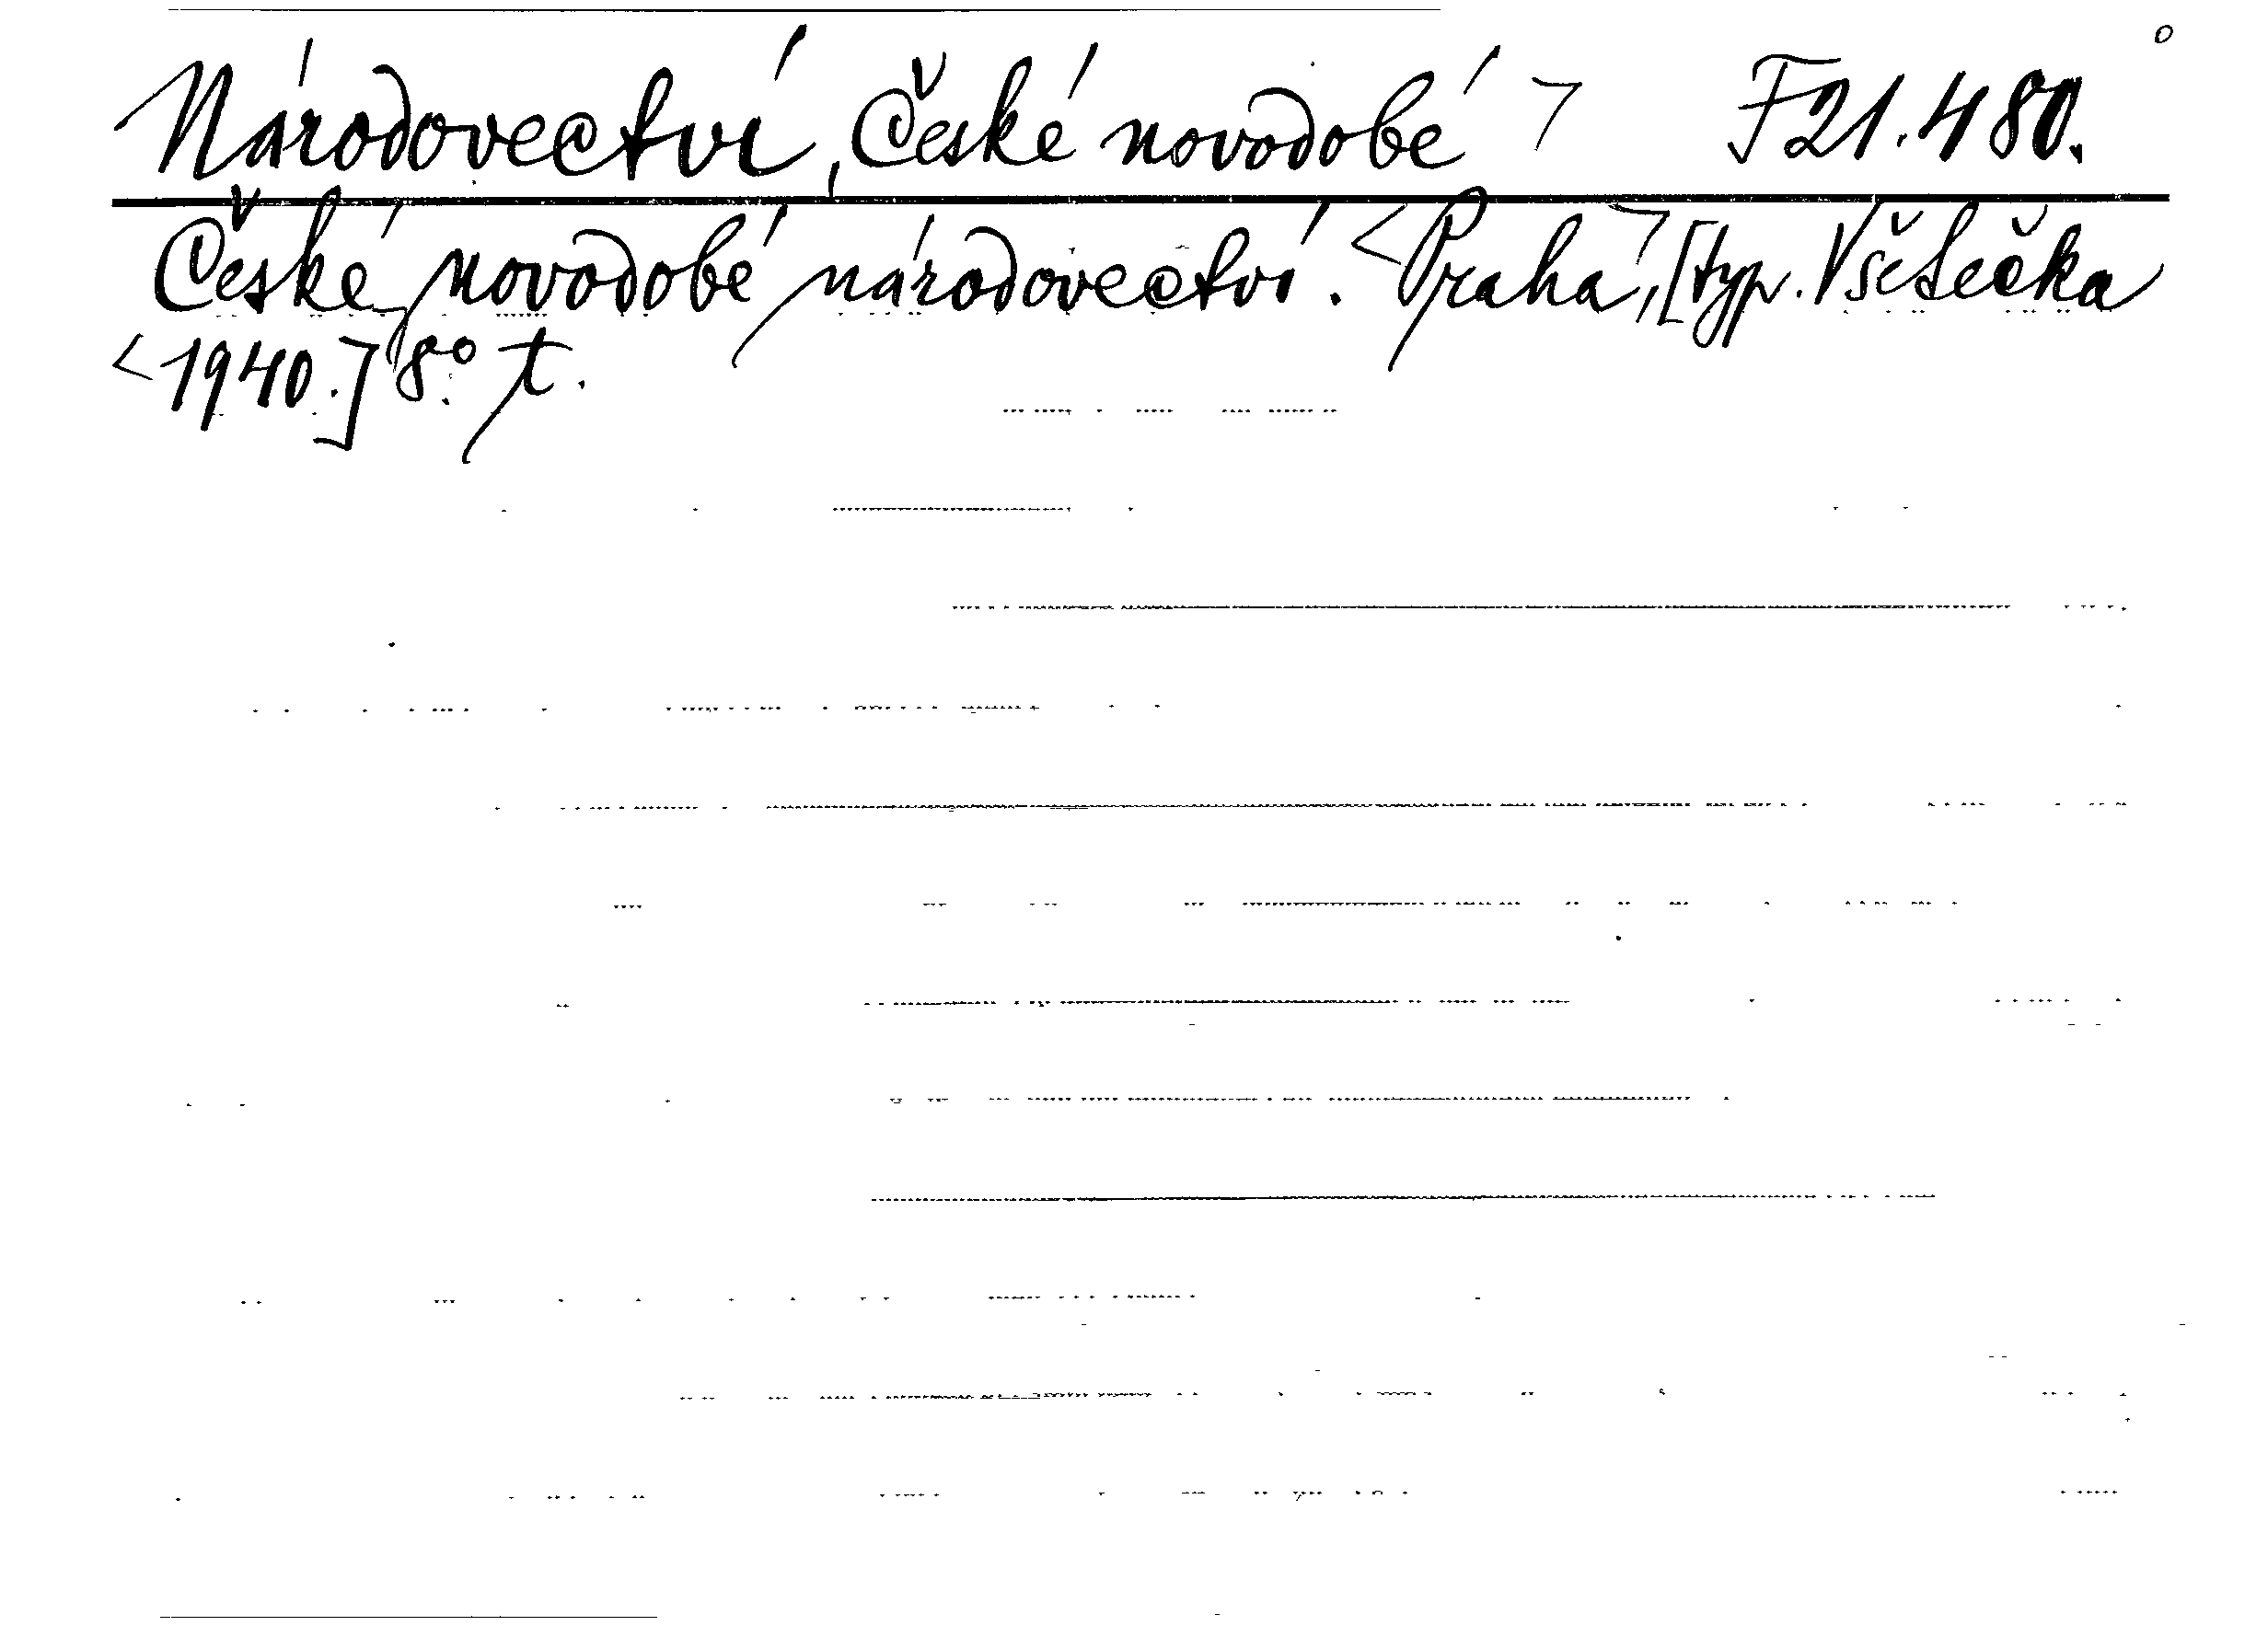 Národovectví, České novodobé ¬ F21.480.
České novodobé národovectví. <Praha,¬ [typ. Všetečka
<1940.] 8°. t.